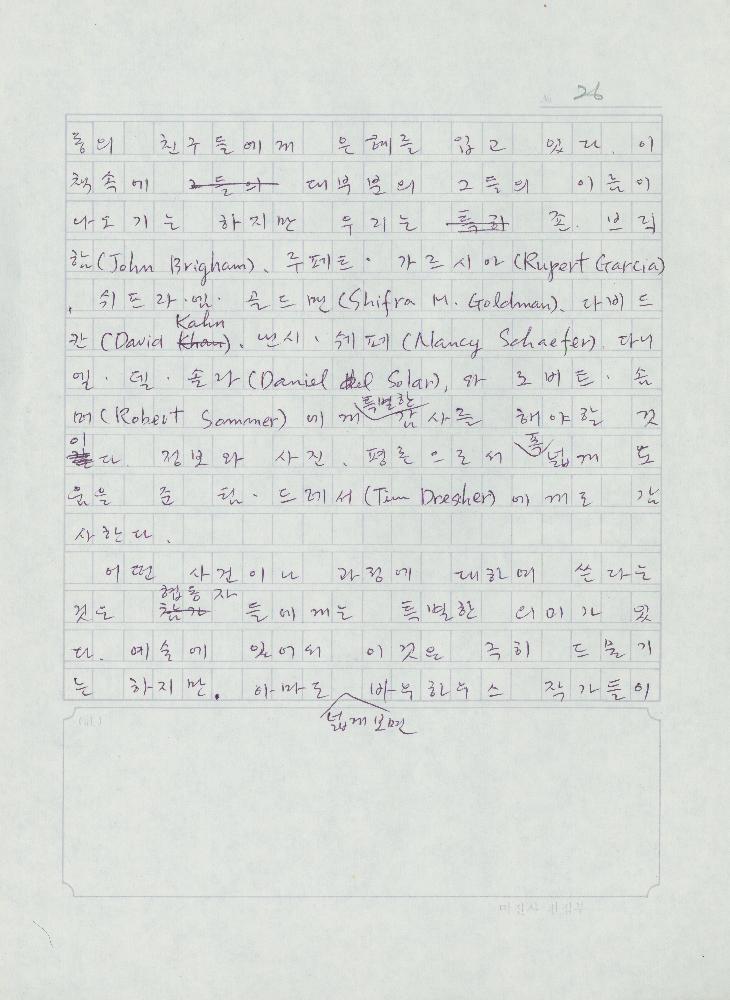 26
동의 친구들에게 은혜를 입고 있다. 이
책속에 그들의 대부분의 그들의 이름이
나오기는 하지만 우리는 특히 존. 브릭
함(John Brigham), 루페트. 가르시아(Rupert Garcia)
, 쉬프라.엠. 골드만(Shifra M. Goldman), 다비드
Kahn
칸(David Khan), 낸시. 쉐퍼(Nancy Schaefer), 다니
엘. 델. 솔라(Daniel del Solar), 와 로버트. 솜
특별한
머(Robert Sommer)에게 감사를 해야할 것
이 폭
다. 정보와 사진, 평론으로서 넓게 도
움을 준 팀. 드레서(Tim Drescher)에게로 감
사한다.
어떤 사건이나 과정에 대하여 쓴다는
협동자
것은 참가들에게는 특별한 의미가 있
다. 예술에 있어서 이것은 극히 드물기
는 하지만. 아마도 바우하우스 작가들이
넓게보면
마진사 편집부